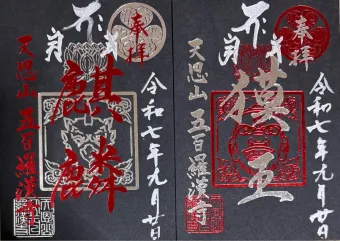 奉拝
麒麟
天恩山 五百羅漢寺
令和七年九月廿日
奉拝
獏王
天恩山 五百羅漢寺
令和七年九月廿日